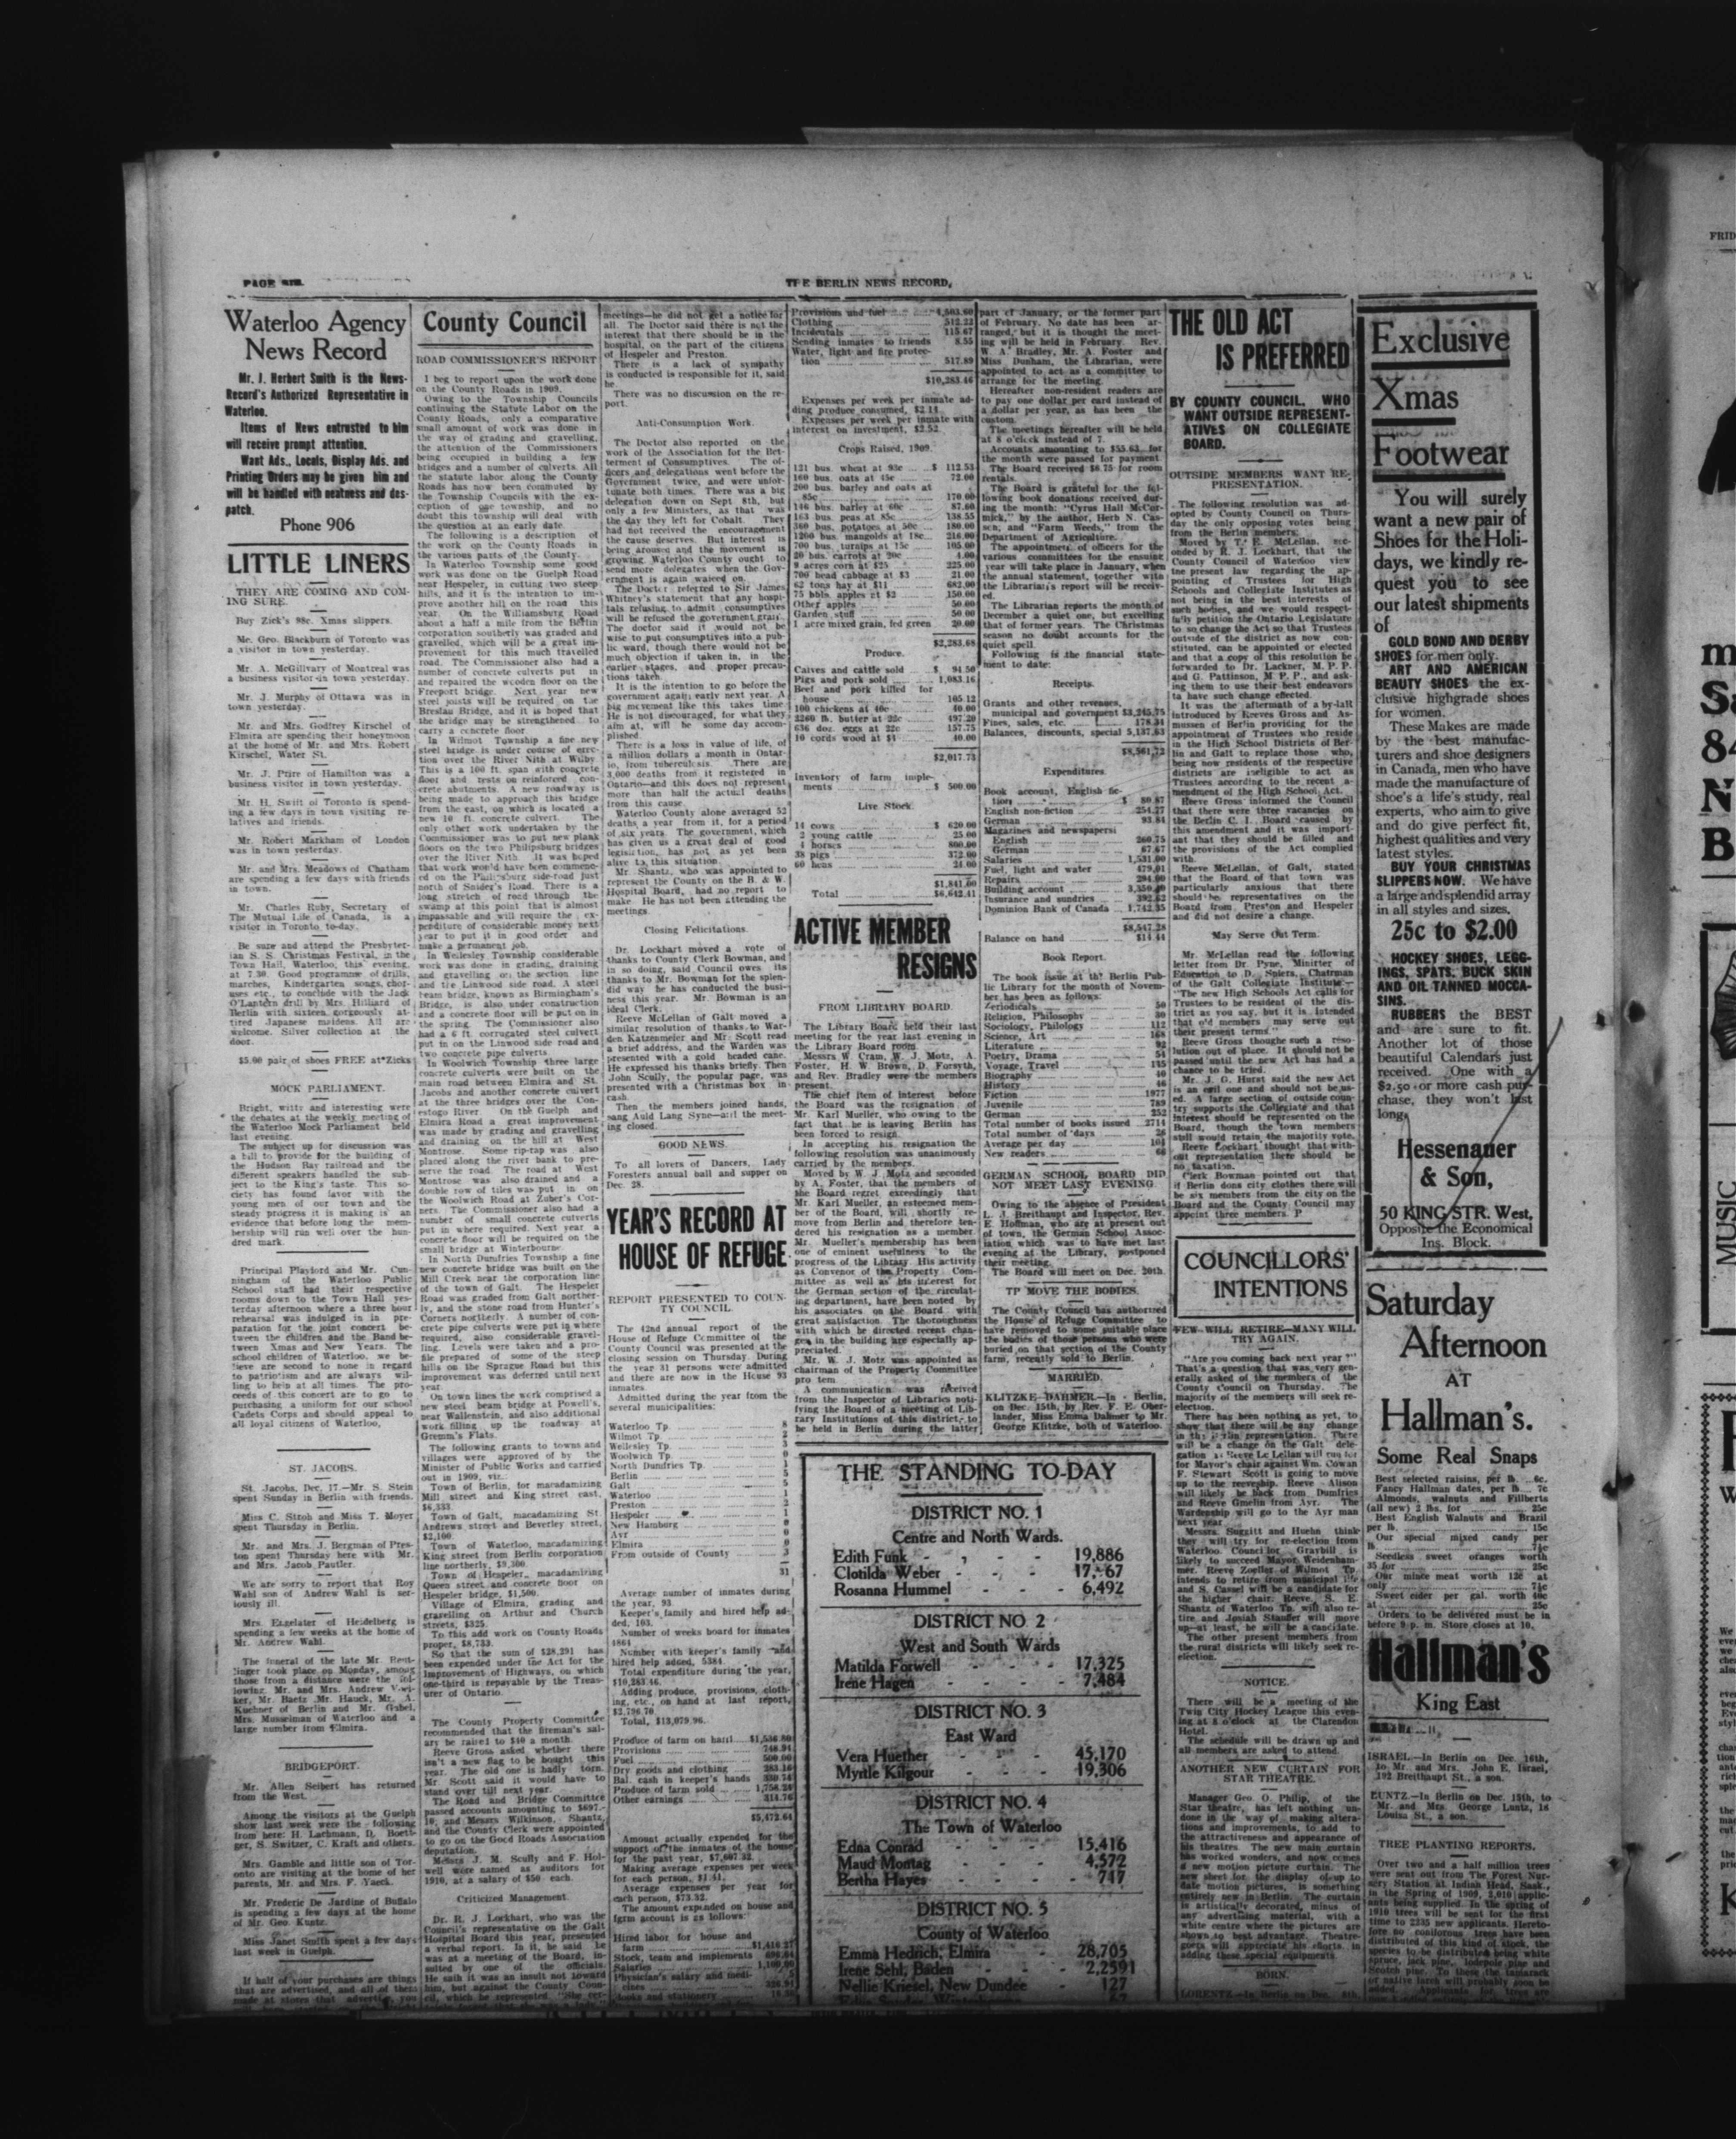 PAGE SIX
THE BERLIN NEWS RECORD,
Waterloo Agency
News Record
Mr. J. Herbert Smith is the News-
Record's Authorized Representative in
Waterloo.
Items of News entrusted to him
will receive prompt attention.
Want Ads., Locals, Display Ads. and
Printing Orders may be given him and
will be handled with neatness and des-
patch.
Phone 906
LITTLE LINERS
THEY ARE COMING AND COM-
ING SURE.
Buy Zick's 98c. Xmas slippers.
Mr. Geo. Blackburn of Toronto was
a visitor in town yesterday.
Mr. A. McGillvary of Montreal was
a business visitor in town yesterday.
Mr. J. Murphy of Ottawa was in
town yesterday.
Mr. and Mrs. Godfrey Kirschel of
Elmira are spending their honeymoon
at the home of Mr. and Mrs. Robert
Kirschel, Water St.
Mr. J. Prire of Hamilton was a
business visitor in town yesterday.
Mr. H. Swift of Toronto is spend-
ing a few days in town visiting re-
latives and friends.
Mr. Robert Markham of London
was in town yesterday.
Mr. and Mrs. Meadows of Chatham
are spending a few days with friends
in town.
Mr. Charles Ruby, Secretary of
The Mutual Life of Canada, is a
visitor in Toronto to-day.
Be sure and attend the Presbyter-
ian S. S. Christmas Festival, in the
Town Hall, Waterloo, this evening,
at 7.30. Good programme of drills,
marches, Kindergarten songs, chor-
uses etc., to conclude with the Jack
O'Lantern drill by Mrs. Hilliard of
Berlin with sixteen gorgeously at-
tired Japanese maidens. All are
welcome. Silver collection at the
door.
$5.00 pair of shoes FREE at Zicks
MOCK PARLIAMENT.
Bright, witty and interesting were
the debates at the weekly meeting of
the Waterloo Mock Parliament held
last evening.
The subject up for discussion was
a bill to provide for the building of
the Hudson Bay railroad and the
different speakers handled the sub-
ject to the King's taste. This so-
ciety has found favor with the
young men of our town and the
steady progress it is making is an
evidence that before long the mem-
bership will run well over the hun-
dred mark.
Principal Playford and Mr. Cun-
ningham of the Waterloo Public
School staff had their respective
rooms down to the Town Hall yes-
terday afternoon where a three hour
rehearsal was indulged in in pre-
paration for the joint concert be-
tween the children and the Band be-
tween Xmas and New Years. The
school children of Waterloo, we be-
lieve are second to none in regard
to patriotism and are always wil-
ling to help at all times. The pro-
ceeds of this concert are to go to
purchasing a uniform for our school
Cadets Corps and should appeal to
all loyal citizens of Waterloo.
ST. JACOBS.
St. Jacobs, Dec. 17.—Mr. S. Stein
spent Sunday in Berlin with friends.
Miss C. Stroh and Miss T. Moyer
spent Thursday in Berlin.
Mr. and Mrs. J. Bergman of Pres-
ton spent Thursday here with Mr.
and Mrs. Jacob Pautler.
We are sorry to report that Roy
Wahl son of Andrew Wahl is ser-
iously ill.
Mrs. Ezgelater of Heidelberg is
spending a few weeks at the home of
Mr. Andrew Wahl.
The funeral of the late Mr. Reut-
linger took place on Monday, among
those from a distance were the fol-
lowing. Mr. and Mrs. Andrew
ker, Mr. Baetz Mr. Hauck, Mr. A.
Kuehner of Berlin and Mr. Gabel,
Mrs. Musselman of Waterloo and a
large number from Elmira.
BRIDGEPORT.
Mr. Allen Seibert has returned
from the West.
Among the visitors at the Guelph
show last week were the following
from here: H. Lachmann, D. Boett-
ger, S. Switzer, C. Kraft and others.
Mrs. Gamble and little son of Tor-
onto are visiting at the home of her
parents, Mr. and Mrs. F. Yaeck.
Mr. Frederic De Jardine of Buffalo
is spending a few days at the home
of Mr. Geo. Kuntz.
Miss Janet Smith spent a few days
last week in Guelph.
If half of your purchases are things
that are advertised, and all of them
made at stores that advertise, you
County Council
ROAD COMMISSIONER'S REPORT
I beg to report upon the work done
on the County Roads in 1909.
Owing to the Township Councils
continuing the Statute Labor on the
County Roads, only a comparative
small amount of work was done in
the way of grading and gravelling,
the attention of the Commissioners
being occupied in building a few
bridges and a number of culverts. All
the statute labor along the County
Roads has now been commuted by
the Township Councils with the ex-
ception of one township, and no
doubt this township will deal with
the question at an early date.
The following is a description of
the work on the County Roads in
the various parts of the County.
In Waterloo Township some good
work was done on the Guelph Road
near Hespeler, in cutting two steep
hills, and it is the intention to im-
prove another hill on the road this
year. On the Williamsburg Road
about a half a mile from the Berlin
corporation southerly was graded and
gravelled, which will be a great im-
provement for this much travelled
road. The Commissioner also had a
number of concrete culverts put in
and repaired the wooden floor on the
Freeport bridge. Next year new
steel joists will be required on the
Breslau Bridge, and it is hoped that
the bridge may be strengthened to
carry a concrete floor.
In Wilmot Township a fine new
steel bridge is under course of erec-
tion over the River Nith at Wilby.
This is a 100 ft. span with concrete
floor and rests on reinforced con-
crete abutments. A new roadway is
being made to approach this bridge
from the east, on which is located a
new 10 ft. concrete culvert. The
only other work undertaken by the
Commissioner was to put new plank
floors on the two Philipsburg bridges
over the River Nith. It was hoped
that work would have been commenc-
ed on the Philipsburg side-road just
north of Snider's Road. There is a
long stretch of road through the
swamp at this point that is almost
impassable and will require the ex-
penditure of considerable money next
year to put it in good order and
make a permanent job.
In Wellesley Township considerable
work was done in grading, draining
and gravelling on the section line
and the Linwood side road. A steel
beam bridge, known as Birmingham's
Bridge, is also under construction
and a concrete floor will be put on in
the spring. The Commissioner also
had a 6 ft. corrugated steel culvert
put in on the Linwood side road and
two concrete pipe culverts.
In Woolwich Township three large
concrete culverts were built on the
main road between Elmira and St.
Jacobs and another concrete culvert
at the three bridges over the Con-
estogo River. On the Guelph and
Elmira Road a great improvement
was made by grading and gravelling
and draining on the hill at West
Montrose. Some rip-rap was also
placed along the river bank to pre-
serve the road. The road at West
Montrose was also drained and a
double row of tiles was put in on
the Woolwich Road at Zuber's Cor-
ners. The Commissioner also had a
number of small concrete culverts
put in where required. Next year a
concrete floor will be required on the
small bridge at Winterbourne.
In North Dumfries Township a fine
new concrete bridge was built on the
Mill Creek near the corporation line
of the town of Galt. The Hespeler
Road was graded from Galt norther-
ly, and the stone road from Hunter's
Corners northerly. A number of con-
crete pipe culverts were put in where
required, also considerable gravel-
ling. Levels were taken and a pro-
file prepared of some of the steep
hills on the Sprague Road but this
improvement was deferred until next
year.
On town lines the work comprised a
new steel beam bridge at Powell's,
near Wallenstein, and also additional
work filling up the roadway at
Gremm's Flats.
The following grants to towns and
villages were approved of by the
Minister of Public Works and carried
out in 1909, viz.:
Town of Berlin, for macadamizing
Mill street and King street east,
$6,333.
Town of Galt, macadamizing St.
Andrews street and Beverley street,
$2,100.
Town of Waterloo, macadamizing
King street from Berlin corporation
line northerly, $9,300.
Town of Hespeler, macadamizing
Queen street and concrete floor on
Hespeler bridge, $1,500.
Village of Elmira, grading and
gravelling on Arthur and Church
streets, $325.
To this add work on County Roads
proper, $8,733.
So that the sum of $28,291 has
been expended under the Act for the
Improvement of Highways, on which
one-third is repayable by the Treas-
urer of Ontario.
The County Property Committee
recommended that the fireman's sal-
ary be raised to $40 a month.
Reeve Gross asked whether there
isn't a new flag to be bought this
year. The old one is badly torn.
Mr. Scott said it would have to
stand over till next year.
The Road and Bridge Committee
passed accounts amounting to $697.-
10, and Messrs Wilkinson, Shantz,
and the County Clerk were appointed
to go on the Good Roads Association
deputation.
Messrs J. M. Scully and F. Hol-
well were named as auditors for
1910, at a salary of $50 each.
Criticized Management
Dr. R. J. Lockhart, who was the
Council's representative on the Galt
Hospital Board this year, presented
a verbal report. In it, he said he
was at a meeting of the Board, in-
sulted by one of the officials.
He said it was an insult not toward
him, but against the County Coun-
cil, which he represented.
meetings—he did not get a notice for
all. The Doctor said there is not the
interest that there should be in the
hospital, on the part of the citizens
of Hespeler and Preston.
There is a lack of sympathy
in conducted is responsible for it, said
he.
There was no discussion on the re-
port.
Anti-Consumption Work.
The Doctor also reported on the
work of the Association for the Bet-
terment of Consumptives. The of-
ficers and delegations went before the
Government twice, and were unfor-
tunate both times. There was a big
delegation down on Sept 8th, but
only a few Ministers, as that was
the day they left for Cobalt. They
had not received the encouragement
the cause deserves. But interest is
being aroused and the movement is
growing. Waterloo County ought to
send more delegates when the Gov-
ernment is again waited on.
The Doctor referred to Sir James
Whitney's statement that any hospi-
tals refusing to admit consumptives
will be refused the government grant.
The doctor said it would not be
wise to put consumptives into a pub-
lic ward, though there would not be
much objection if taken in, in the
earlier stages, and proper precau-
tions taken.
It is the intention to go before the
government again early next year. A
big movement like this takes time.
He is not discouraged, for what they
aim at, will be some day accom-
plished.
There is a loss in value of life, of
a million dollars a month in Ontar-
io, from tuberculosis. There are
3,000 deaths from it registered in
Ontario—and this does not represent
more than half the actual deaths
from this cause.
Waterloo County alone averaged 52
deaths a year from it, for a period
of six years. The government, which
has given us a great deal of good
legislation, has not as yet been
alive to this situation.
Mr. Shantz, who was appointed to
represent the County on the B. & W.
Hospital Board, had no report to
make. He has not been attending the
meetings.
Closing Felicitations.
Dr. Lockhart moved a vote of
thanks to County Clerk Bowman, and
in so doing, said Council owes its
thanks to Mr. Bowman for the splen-
did way he has conducted the busi-
ness this year. Mr. Bowman is an
ideal Clerk.
Reeve McLellan of Galt moved a
similar resolution of thanks to War-
den Katzenmeier and Mr. Scott read
a brief address, and the Warden was
presented with a gold headed cane.
He expressed his thanks briefly. Then
John Scully, the popular page, was
presented with a Christmas box in
cash.
Then the members joined hands,
sang Auld Lang Syne—and the meet-
ing closed.
GOOD NEWS.
To all lovers of Dancers, Lady
Foresters annual ball and supper on
Dec. 28.
YEAR'S RECORD AT
HOUSE OF REFUGE
REPORT PRESENTED TO COUN-
TY COUNCIL.
The 42nd annual report of the
House of Refuge Committee of the
County Council was presented at the
closing session on Thursday. During
the year 31 persons were admitted
and there are now in the House 93
inmates.
Admitted during the year from the
several municipalities:
Waterloo Tp. 8
Wilmot Tp. 2
Wellesley Tp. 3
Woolwich Tp. 0
North Dumfries Tp. 1
Berlin 5
Galt 5
Waterloo 1
Preston 2
Hespeler 1
New Hamburg 0
Ayr 0
Elmira 0
From outside of County 3
31
Average number of inmates during
the year, 93.
Keeper's family and hired help ad-
ded, 103.
Number of weeks board for inmates
4864
Number with keeper's family and
hired help added, 5384.
Total expenditure during the year,
$10,283.46.
Adding produce, provisions, cloth-
ing, etc., on hand at last report,
$2,796.70.
Total, $13,079.96.
Produce of farm on hand $1,536.80
Provisions 748.94
Fuel 500.00
Dry goods and clothing 283.16
Bal. cash in keeper's hands
Produce of farm sold
Other earnings 314.76
$5,472.64
Amount actually expended for the
support of the inmates of the house
for the past year, $7,607.32.
Making average expenses per week
for each person, $1.41.
Average expenses per year for
each person, $73.32.
The amount expended on house and
farm account is as follows:
Hired labor for house and
farm $1,416.27
Stock, team and implements
Salaries 1,100.00
Physician's salary and medi-
cines
Books and stationery
Provisions and fuel 4,503.60
Clothing 512.22
Incidentals 115.67
Sending inmates to friends 8.55
Water, light and fire protec-
tion 517.89
$10,283.46
Expenses per week per inmate ad-
ding produce consumed, $2.14.
Expenses per week per inmate with
interest on investment, $2.52.
Crops Raised, 1909.
121 bus. wheat at 93c $ 112.53
160 bus. oats at 45c 72.00
200 bus. barley and oats at
85c 170.00
146 bus. barley at 60c 87.60
163 bus. peas at 85c 138.55
360 bus. potatoes at 50c 180.00
1200 bus. mangolds at 18c 216.00
700 bus. turnips at 15c 105.00
20 bus. carrots at 20c 4.00
9 acres corn at $25 225.00
700 head cabbage at $3 21.00
62 tons hay at $11 682.00
75 bbls. apples at $2 150.00
Other apples 50.00
Garden stuff 50.00
1 acre mixed grain, fed green 20.00
$2,283.68
Produce.
Calves and cattle sold $ 94.50
Pigs and pork sold 1,083.16
Beef and pork killed for
house 105.12
100 chickens at 40c 40.00
2260 lb. butter at 22c 497.20
636 doz. eggs at 22c 157.75
10 cords wood at $4 40.00
$2,017.73
Inventory of farm imple-
ments $ 500.00
Live Stock.
14 cows $ 620.00
2 young cattle 25.00
4 horses 800.00
38 pigs 372.00
60 hens 24.00
$1,841.00
Total $6,642.41
ACTIVE MEMBER
RESIGNS
FROM LIBRARY BOARD.
The Library Board held their last
meeting for the year last evening in
the Library Board room.
Messrs W. Cram, W. J. Motz, A.
Foster, H. W. Brown, D. Forsyth,
and Rev. Bradley were the members
present.
The chief item of interest before
the Board was the resignation of
Mr. Karl Mueller, who owing to the
fact that he is leaving Berlin has
been forced to resign.
In accepting his resignation the
following resolution was unanimously
carried by the members.
Moved by W. J. Motz and seconded
by A. Foster, that the members of
the Board regret exceedingly that
Mr. Karl Mueller, an esteemed mem-
ber of the Board, will shortly re-
move from Berlin and therefore ten-
dered his resignation as a member.
Mr. Mueller's membership has been
one of eminent usefulness to the
progress of the Library. His activity
as Convenor of the Property Com-
mittee as well as his interest for
the German section of the circulat-
ing department, have been noted by
his associates on the Board with
great satisfaction. The thoroughness
with which he directed recent chan-
ges in the building are especially ap-
preciated.
Mr. W. J. Motz was appointed as
chairman of the Property Committee
pro tem.
A communication was received
from the Inspector of Libraries noti-
fying the Board of a meeting of Lib-
rary Institutions of this district, to
be held in Berlin during the latter
part of January, or the former part
of February. No date has been ar-
ranged, but it is thought the meet-
ing will be held in February. Rev.
W. A. Bradley, Mr. A. Foster and
Miss Dunham, the Librarian, were
appointed to act as a committee to
arrange for the meeting.
Hereafter non-resident readers are
to pay one dollar per card instead of
a dollar per year, as has been the
custom.
The meetings hereafter will be held
at 8 o'clock instead of 7.
Accounts amounting to $55.63 for
the month were passed for payment.
The Board received $8.75 for room
rentals.
The Board is grateful for the fol-
lowing book donations received dur-
ing the month: "Cyrus Hall McCor-
mick," by the author, Herb N. Cas-
sen; and "Farm Weeds," from the
Department of Agriculture.
The appointment of officers for the
various committees for the ensuing
year will take place in January, when
the annual statement, together with
the Librarian's report will be receiv-
ed.
The Librarian reports the month of
December a quiet one, but excelling
that of former years. The Christmas
season no doubt accounts for the
quiet spell.
Following is the financial state-
ment to date:
Receipts.
Grants and other revenues,
municipal and government $3,245.75
Fines, sales, etc. 178.34
Balances, discounts, special 5,137.63
$8,561.72
Expenditures.
Book account, English fic-
tion $ 80.87
English non-fiction 254.27
German 93.84
Magazines and newspapers:
English 260.75
German 67.67
Salaries 1,531.00
Fuel, light and water 479.01
Repairs 294.60
Building account
Insurance and sundries 392.62
Dominion Bank of Canada 1,742.35
$8,547.28
Balance on hand $14.44
Book Report.
The book issue at the Berlin Pub-
lic Library for the month of Novem-
ber has been as follows:
Periodicals 50
Religion, Philosophy 30
Sociology, Philology 112
Science, Art 163
Literature 92
Poetry, Drama 54
Voyage, Travel 135
Biography 40
History 46
Fiction 1977
Juvenile 789
German 252
Total number of books issued 2714
Total number of days 26
Average per day 104
New readers 66
GERMAN SCHOOL BOARD DID
NOT MEET LAST EVENING
Owing to the absence of President
L. J. Breithaupt and Inspector, Rev.
E. Hoffman, who are at present out
of town, the German School Assoc-
iation which was to have met last
evening at the Library, postponed
their meeting.
The Board will meet on Dec. 20th.
TP MOVE THE BODIES.
The County Council has authorized
the House of Refuge Committee to
have removed to some suitable place
the bodies of those persons who were
buried on that section of the County
farm, recently sold to Berlin.
MARRIED.
KLITZKE—DAHMER.—In Berlin,
on Dec. 15th, by Rev. F. E. Ober-
lander, Miss Emma Dahmer to Mr.
George Klitzke, both of Waterloo.
THE STANDING TO-DAY
DISTRICT NO. 1
Centre and North Wards.
Edith Funk - - - 19,886
Clotilda Weber - - - 17,-67
Rosanna Hummel - - 6,492
DISTRICT NO. 2
West and South Wards
Matilda Forwell - - - 17,325
Irene Hagen - - - 7,484
DISTRICT NO. 3
East Ward
Vera Huether - - - 45,170
Myrtle Kilgour - - - 19,306
DISTRICT NO. 4
The Town of Waterloo
Edna Conrad - - - 15,416
Maud Montag - - - 4,572
Bertha Hayes - - - 747
DISTRICT NO. 5
County of Waterloo
Emma Hedrich, Elmira - 28,705
Irene Sehl, Baden - - 2,2591
Nellie Kriesel, New Dundee 127
THE OLD ACT
IS PREFERRED
BY COUNTY COUNCIL, WHO
WANT OUTSIDE REPRESENT-
ATIVES ON COLLEGIATE
BOARD.
OUTSIDE MEMBERS WANT RE-
PRESENTATION.
The following resolution was ad-
opted by County Council on Thurs-
day the only opposing votes being
from the Berlin members:
Moved by T. E. McLellan, sec-
onded by R. J. Lockhart, that the
County Council of Waterloo view
the present law regarding the ap-
pointing of Trustees for High
Schools and Collegiate Institutes as
not being in the best interests of
such bodies, and we would respect-
fully petition the Ontario Legislature
to so change the Act so that Trustees
outside of the district as now con-
stituted, can be appointed or elected
and that a copy of this resolution be
forwarded to Dr. Lackner, M. P. P.
and G. Pattinson, M. P. P., and ask-
ing them to use their best endeavors
to have such change effected.
It was the aftermath of a by-law
introduced by Reeves Gross and As-
mussen of Berlin providing for the
appointment of Trustees who reside
in the High School Districts of Ber-
lin and Galt to replace those who,
being now residents of the respective
districts are ineligible to act as
Trustees according to the recent a-
mendment of the High School Act.
Reeve Gross informed the Council
that there were three vacancies on
the Berlin C. I. Board caused by
this amendment and it was import-
ant that they should be filled and
the provisions of the Act complied
with.
Reeve McLellan, of Galt, stated
that the Board of that town was
particularly anxious that there
should be representatives on the
Board from Preston and Hespeler
and did not desire a change.
May Serve Out Term.
Mr. McLellan read the following
letter from Dr. Pyne, Minister of
Education to D. Spiers, Chairman
of the Galt Collegiate Institute:—
"The new High Schools Act calls for
Trustees to be resident of the dis-
trict as you say, but it is intended
that old members may serve out
their present terms."
Reeve Gross thought such a reso-
lution out of place. It should not be
passed until the new Act has had a
chance to be tried.
Mr. J. G. Hurst said the new Act
is an evil one and should not be us-
ed. A large section of outside coun-
try supports the Collegiate and that
interest should be represented on the
Board, though the town members
still would retain the majority vote.
Reeve Lockhart thought that with-
out representation there should be
no taxation.
Clerk Bowman pointed out that
if Berlin dons city clothes there will
be six members from the city on the
Board and the County Council may
appoint three members.
COUNCILLORS'
INTENTIONS
FEW WILL RETIRE—MANY WILL
TRY AGAIN.
"Are you coming back next year?"
That's a question that was very gen-
erally asked of the members of the
County Council on Thursday. The
majority of the members will seek re-
election.
There has been nothing as yet, to
show that there will be any change
in the Berlin representation. There
will be a change on the Galt dele-
gation as Reeve Mc Lellan will run for
for Mayor's chair against Wm. Cowan
F. Stewart Scott is going to move
up to the reeveship. Reeve Alison
will likely be back from Dumfries
and Reeve Gmelin from Ayr. The
Wardenship will go to the Ayr man
next year.
Messrs. Suggitt and Huehn think
they will try for re-election from
Waterloo. Councillor Graybill is
likely to succeed Mayor Weidenham-
mer. Reeve Zoeller of Wilmot Tp.
intends to retire from municipal life
and S. Cassel will be a candidate for
the higher chair. Reeve S. E.
Shantz of Waterloo Tp. will also re-
tire and Josiah Stauffer will move
up—at least, he will be a candidate.
The other present members from
the rural districts will likely seek re-
election.
NOTICE.
There will be a meeting of the
Twin City Hockey League this even-
ing at 8 o'clock at the Clarendon
Hotel.
The schedule will be drawn up and
all members are asked to attend.
ANOTHER NEW CURTAIN FOR
STAR THEATRE.
Manager Geo. O. Philip, of the
Star theatre, has left nothing un-
done in the way of making altera-
tions and improvements, to add to
the attractiveness and appearance of
his theatre. The new main curtain
has worked wonders, and now comes
a new motion picture curtain. The
new sheet for the display of up to
date motion pictures, is something
entirely new in Berlin. The curtain
is artistically decorated, minus of
any advertising material, with a
white centre where the pictures are
shown to best advantage. Theatre-
goers will appreciate his efforts in
adding these special equipments.
BORN.
LORENTZ—In Berlin on Dec. 8th,
Exclusive
Xmas
Footwear
You will surely
want a new pair of
Shoes for the Holi-
days, we kindly re-
quest you to see
our latest shipments
of
GOLD BOND AND DERBY
SHOES for men only.
ART AND AMERICAN
BEAUTY SHOES the ex-
clusive highgrade shoes
for women.
These Makes are made
by the best manufac-
turers and shoe designers
in Canada, men who have
made the manufacture of
shoe's a life's study, real
experts, who aim to give
and do give perfect fit,
highest qualities and very
latest styles.
BUY YOUR CHRISTMAS
SLIPPERS NOW. We have
a large and splendid array
in all styles and sizes.
25c to $2.00
HOCKEY SHOES, LEGG-
INGS, SPATS, BUCK SKIN
AND OIL TANNED MOCCA-
SINS.
RUBBERS the BEST
and are sure to fit.
Another lot of those
beautiful Calendars just
received. One with a
$2.50 or more cash pur-
chase, they won't last
long.
Hessenauer
& Son,
50 KING STR. West,
Opposite the Economical
Ins. Block.
Saturday
Afternoon
AT
Hallman's.
Some Real Snaps
Best selected raisins, per lb. 6c.
Fancy Hallman dates, per lb 7c
Almonds, walnuts and Fillberts
(all new) 2 lbs. for 25c
Best English Walnuts and Brazil
per lb. 15c
Our special mixed candy per
lb. 7½c
Seedless sweet oranges worth
35 for 25c
Our mince meat worth 12c at
only 7½c
Sweet cider per gal. worth 40c
at 25c
Orders to be delivered must be in
before 9 p. m. Store closes at 10.
Hallman's
King East
ISRAEL—In Berlin on Dec. 16th,
to Mr. and Mrs. John E. Israel,
192 Breithaupt St., a son.
LUNTZ—In Berlin on Dec. 15th, to
Mr. and Mrs. George Luntz, 18
Louisa St., a son.
TREE PLANTING REPORTS.
Over two and a half million trees
were sent out from The Forest Nur-
sery Station at Indian Head, Sask.,
in the Spring of 1909, 2,010 applic-
ants being supplied. In the spring of
1910 trees will be sent for the first
time to 2235 new applicants. Hereto-
fore no coniferous trees have been
distributed of this kind of stock, the
species to be distributed being white
spruce, jack pine, lodgepole pine and
Scotch pine. To these the tamarack
or native larch will probably soon be
added. Applicants for trees are
FRID
MUSIC